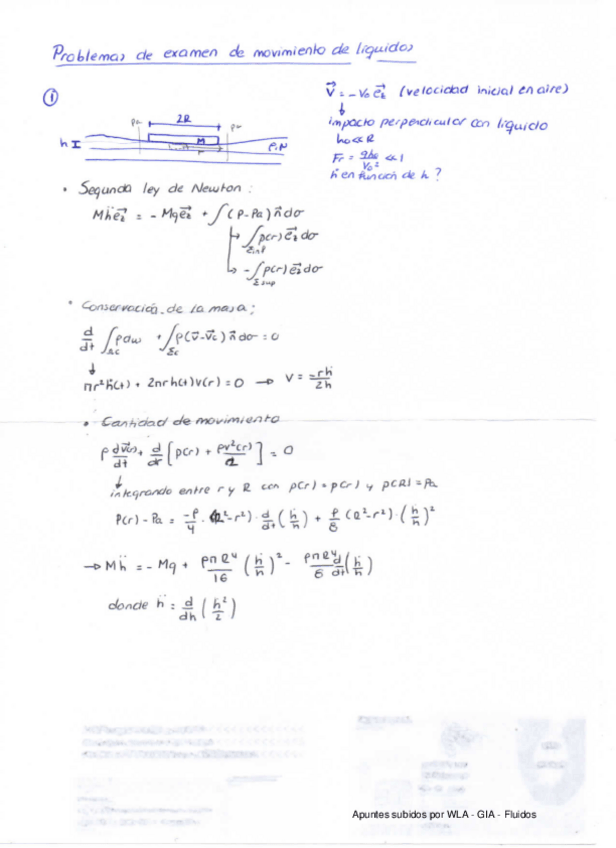 Problemas de examen de movimiento de líquidos
①
2R
Pa
Pa
M
h
r
ρ, N
V⃗ = -V₀ e⃗z (velocidad inicial en aire)
↓
impacto perpendicular con líquido
h₀ << R
Fr = gh₀/V₀² << 1
ḣ en función de h?
• Segunda ley de Newton:
Mḧe⃗z = -Mge⃗z + ∫(P-Pa) n⃗ dσ
↳ ∫Σinf p(r) e⃗z dσ
↳ -∫Σsup p(r) e⃗z dσ
• Conservación de la masa;
d/dt ∫Ωc ρdω + ∫Σc ρ(v⃗-v⃗c) n⃗ dσ = 0
↓
πr²ḣ(t) + 2πrh(t)v(r) = 0 → V = -rḣ/2h
• Cantidad de movimiento
ρ dV⃗(r)/dt + d/dr [p(r) + ρv²(r)/2] = 0
↓
integrando entre r y R con p(r) = p(r) y p(R) = Pa
P(r) - Pa = -ρ/4 · (R²-r²) · d/dt (ḣ/h) + ρ/8 (R²-r²) · (ḣ/h)²
→ Mḧ = -Mg + ρπR⁴/16 (ḣ/h)² - ρπR⁴/8 d/dt (ḣ/h)
donde ḧ = d/dh (ḣ²/2)
Apuntes subidos por WLA - GIA - Fluidos